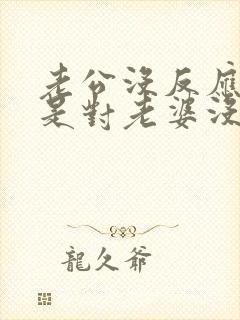 老公沒反應
是對老婆沒
龍久爺